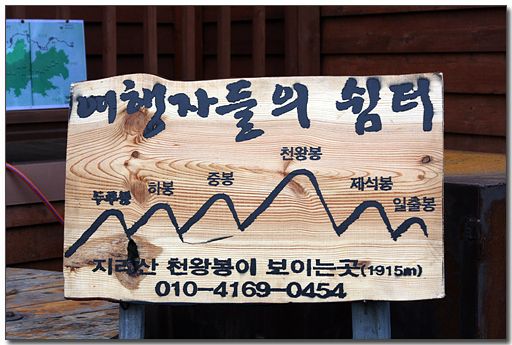 여행자들의 쉼터
천왕봉
두류봉 하봉 중봉 제석봉 일출봉
지리산 천왕봉이 보이는곳(1915m)
010-4169-0454